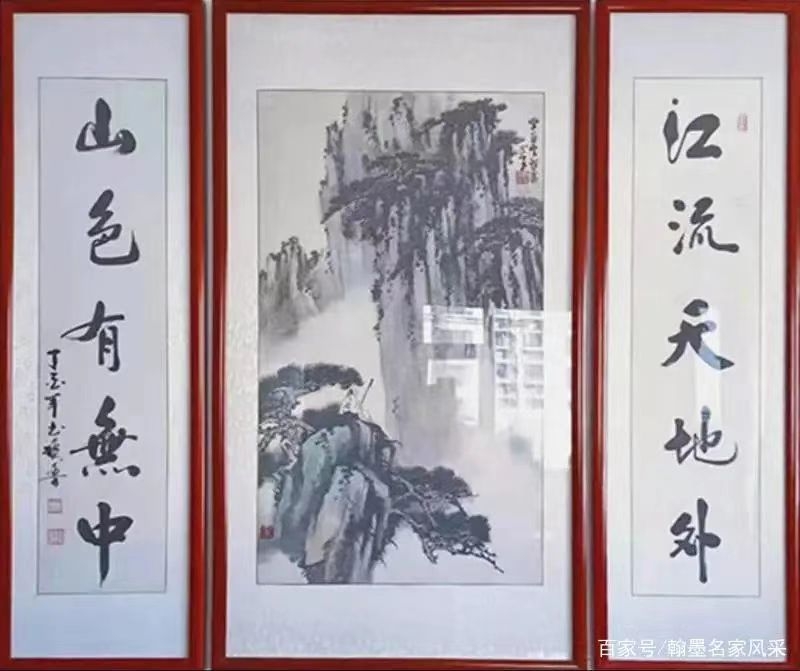 江流天地外
山色有無中
百家号/翰墨名家风采